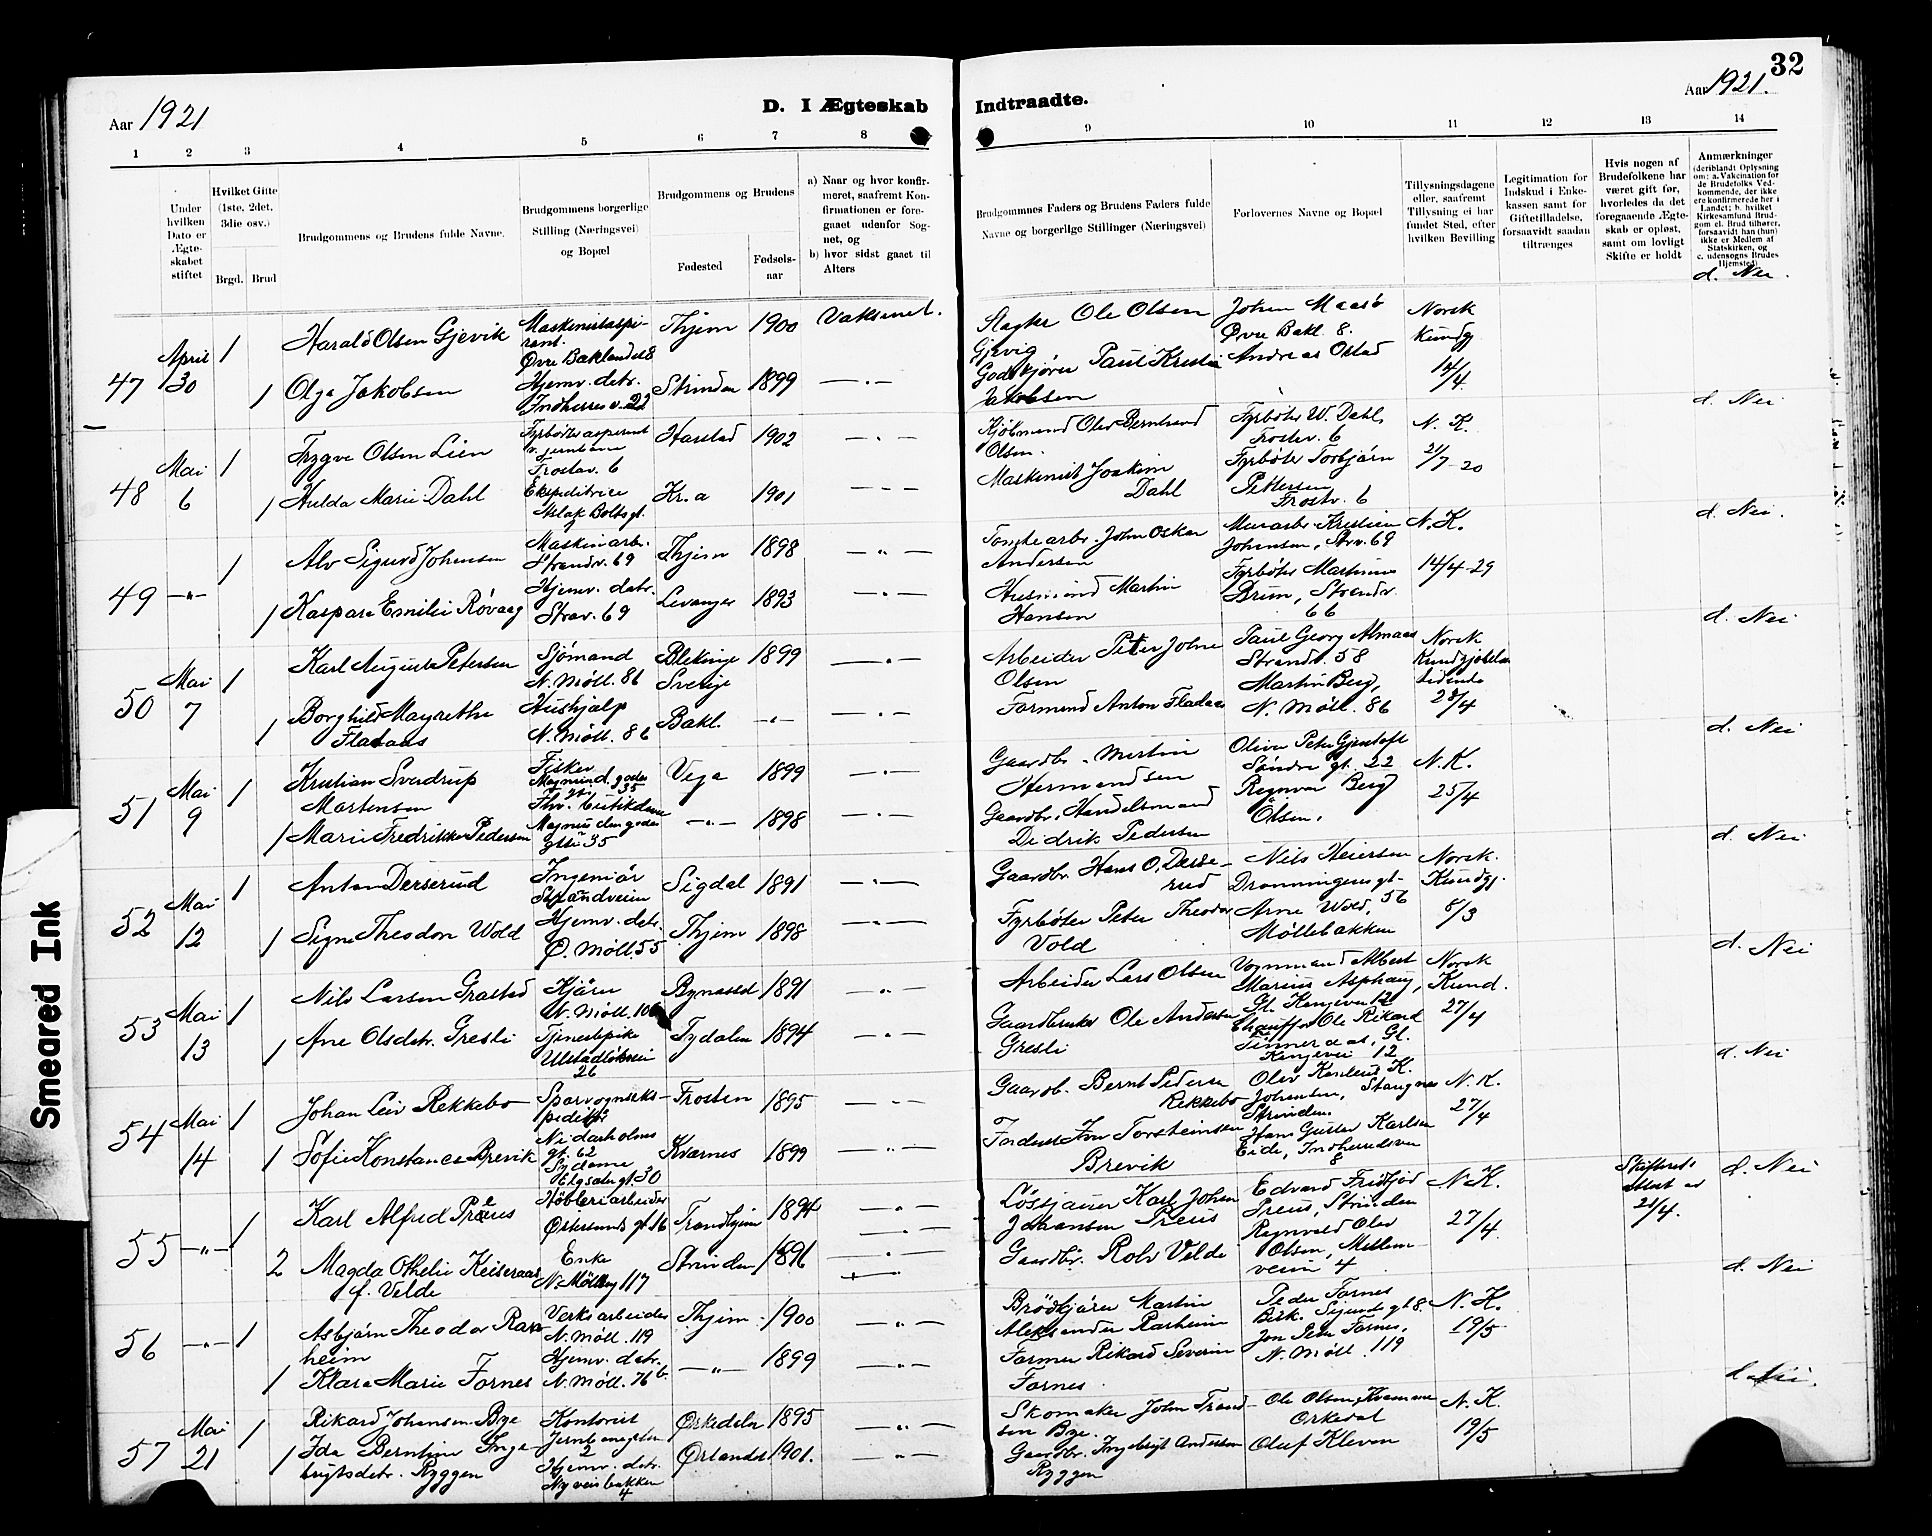 32
Aar 1921
D. I Ægteskab
Indtraadte.
Aar 1921.
1 2 3 4 5 6 7 8
9 10 11 12 13 14
Under hvilken Dato er Ægteskabet stiftet
Hvilket Gifte (1ste, 2det, 3die osv.)
Brgd. Brud
Brudgommens og Brudens fulde Navne.
Brudgommens borgerlige Stilling (Næringsvei) og Bopæl
Brudgommens og Brudens
Fødested
Fødselsaar
a) Naar og hvor konfirmeret, saafremt Konfirmationen er foregaaet udenfor Sognet, og
b) hvor sidst gaaet til Alters
Brudgommnes Faders og Brudens Faders fulde Navne og borgerlige Stillinger (Næringsvei)
Forlovernes Navne og Bopæl
Tillysningsdagene eller, saafremt Tillysning ei har fundet Sted, efter hvilken Bevilling
Legitimation for Indskud i Enkekassen samt for Giftetilladelse, forsaavidt saadan tiltrænges
Hvis nogen af Brudefolkene har været gift før, hvorledes da det foregaaende Ægteskab er opløst, samt om lovligt Skifte er holdt
Anmærkninger (deriblandt Oplysning om: a. Vakcination for de Brudefolks Vedkommende, der ikke ere konfirmerede her i Landet; b. hvilket Kirkesamfund Brudgom el. Brud tilhører, forsaavidt han (hun) ikke er Medlem af Statskirken, og c. udensogns Brudes Hjemsted)
d. Nei.
47 April 30 1 Harald Olsen Gjevik
Maskinistaspirant. Øvre Baklandet 8
Thjem 1900 Vaksinert.
Ole Olsen Gjevig
Johan Maasø Øvre Bakl. 8.
Norsk Kundg 14/4
1 Olga Jakobsen
Hjemv. datr. Indherres v. 22
Strinden 1899 — " —
Paul Kristia Jakobsen
Andreas Ostad
d. Nei
48 Mai 6 1 Trygve Olsen Lien
Fyrbøteraspirant v. jernbane Frostav. 6
Harstad 1902 — " —
Kjøbmand Olav Berntsend Olsen.
Fyrbøter W. Dahl, Frostav. 6
N. K. 21/7-20
1 Hulda Marie Dahl
Ekspeditrice Aslak Boltsgt.
Kr.a 1901 — " —
Maskinist Joakim Dahl
Fyrbøter Torbjørn Pettersen Frostv. 6
d. Nei.
49 — " — 1 Alv Sigurd Johansen
Maskinarb. Strandv. 69
Thjem 1898 — " —
Tomtearb. John Oskar Andersen
Murarb. Kristian Johansen, Strv. 69
N. K. 14/4-29
1 Kaspara Emilie Røvaag
Hjemv. datr. Strav. 69
Levanger 1893 — " —
Husmand Martin Hansen
Fyrbøter Martinus Brun, Strandv. 66
d. Nei
50 Mai 7 1 Karl August Petersen
Sjømand N. Møll. 86
Blekinge Sverige 1899 — " —
Arbeider Peter Johne Olsen
Paul Georg Almaas Strandv. 58
Norsk Kundgjørelsestidende 28/4
1 Borghild Margrethe Fladaas
Hushjelp N. Møll. 86
Bakl. — " — — " —
Formand Anton Fladaas
Martin Berg, N. Møll. 86
d. Nei
51 Mai 9 1 Kristian Sverdrup Martensen
Fisker Magnus d. godes gt. 35
Vega 1899 — " —
Gaardbr. Martin Hermandsen
Oliver Peter Gjentoft Søndre gt. 22
N. K. 25/4
1 Marie Fredrikke Pedersen
Magnus den godes gt. 35
— " — 1898 — " —
Gaardbr. Handelsmand Didrik Pedersen
Ragnvar Berg Olsen.
d. Nei
52 Mai 12 1 Anton Derserud
Ingeniør Strandveien
Sigdal 1891 — " —
Gaardbr. Hans O. Derserud
Nils Heiersen Dronningens gt. 56
Norsk. Kundgj. 8/3
1 Signe Theodora Wold
Hjemv. datr. Ø. Møll. 55
Thjem 1898 — " —
Fyrbøter Peter Theodor Vold
Arne Wold, Møllebakken
d. Nei
53 Mai 13 1 Nils Larsen Grøstad
Kjører N. Møll. 106
Bynesset 1891 — " —
Arbeider Lars Olsen
Vognmand Albert Marius Asphaug, Gl. Kongevei 12
Norsk Kund. 27/4
1 Ane Olsdatr. Gresli
Tjenestepike Ulstadløkveien 26
Tydalen 1894 — " —
Gaardbruker Ole Andersen Gresli
Chauffør Ole Rikard Gl. Kongevei 12
d. Nei
54 Mai 14 1 Johan Leiv Rekkebo
Sporvogns Nidarholms gt. 62
Frosten 1895 — " —
Gaardb. Bernt Pederse Rekkebo
Olav K. Johansen, Stavgnes Strinden.
N. K. 27/4
1 Sofie Konstance Brevik
Sydame Elgsetergt. 30
Kvernes 1899 — " —
Iver Torsteinsen Brevik
Hans Gustav Karlsen Eide, Indherredsvei 8
d. Nei
55 — " — 1 Karl Alfred Preus
Høvleriarbeider Østersunds gt. 16
Trondhjem 1894 — " —
Karl Johan Johansen Preus
Edvard Fridtjof Preus, Strinden
N. K. 27/4
Skifteretsattest av 21/4.
2 Magda Othelie Keiseraas f. Velde
Enke N. Mølleg 117
Strinden 1896 — " —
Gaardbr. Rolv Velde
Ragnvald Olav Olsen, Mellemveien 4
d. Nei
56 — " — 1 Asbjørn Theodor Ranheim
Verksarbeider N. Møll. 119
Thjem. 1900 — " —
Brødkjører Martin Aleksander Ranheim
Peder Fornes Birk. Sigurds gt 8.
N. K. 19/5
1 Klara Marie Fornes
Hjemv. datr. N. Møll. 76 b
— " — 1899 — " —
Former Rikard Severin Fornes
Jon Peter Fornes, N. Møll. 119
d. Nei.
57 Mai 21 1 Rikard Johansen Bye
Kontorist Jernbanegaten 2
Ørkedalen 1895 — " —
Skomaker John Trondsen Bye.
Ole Olsen Kvamme Orkedal
N. K. 19/5
1 Ida Berntine Ingebrigtsdatr. Ryggen
Hjemv. datr. Nyveisbakken 4
Ørlandet 1901. — " —
Gaardbr. Ingebrigt Andersen Ryggen
Oluf Kleven
Smeared Ink